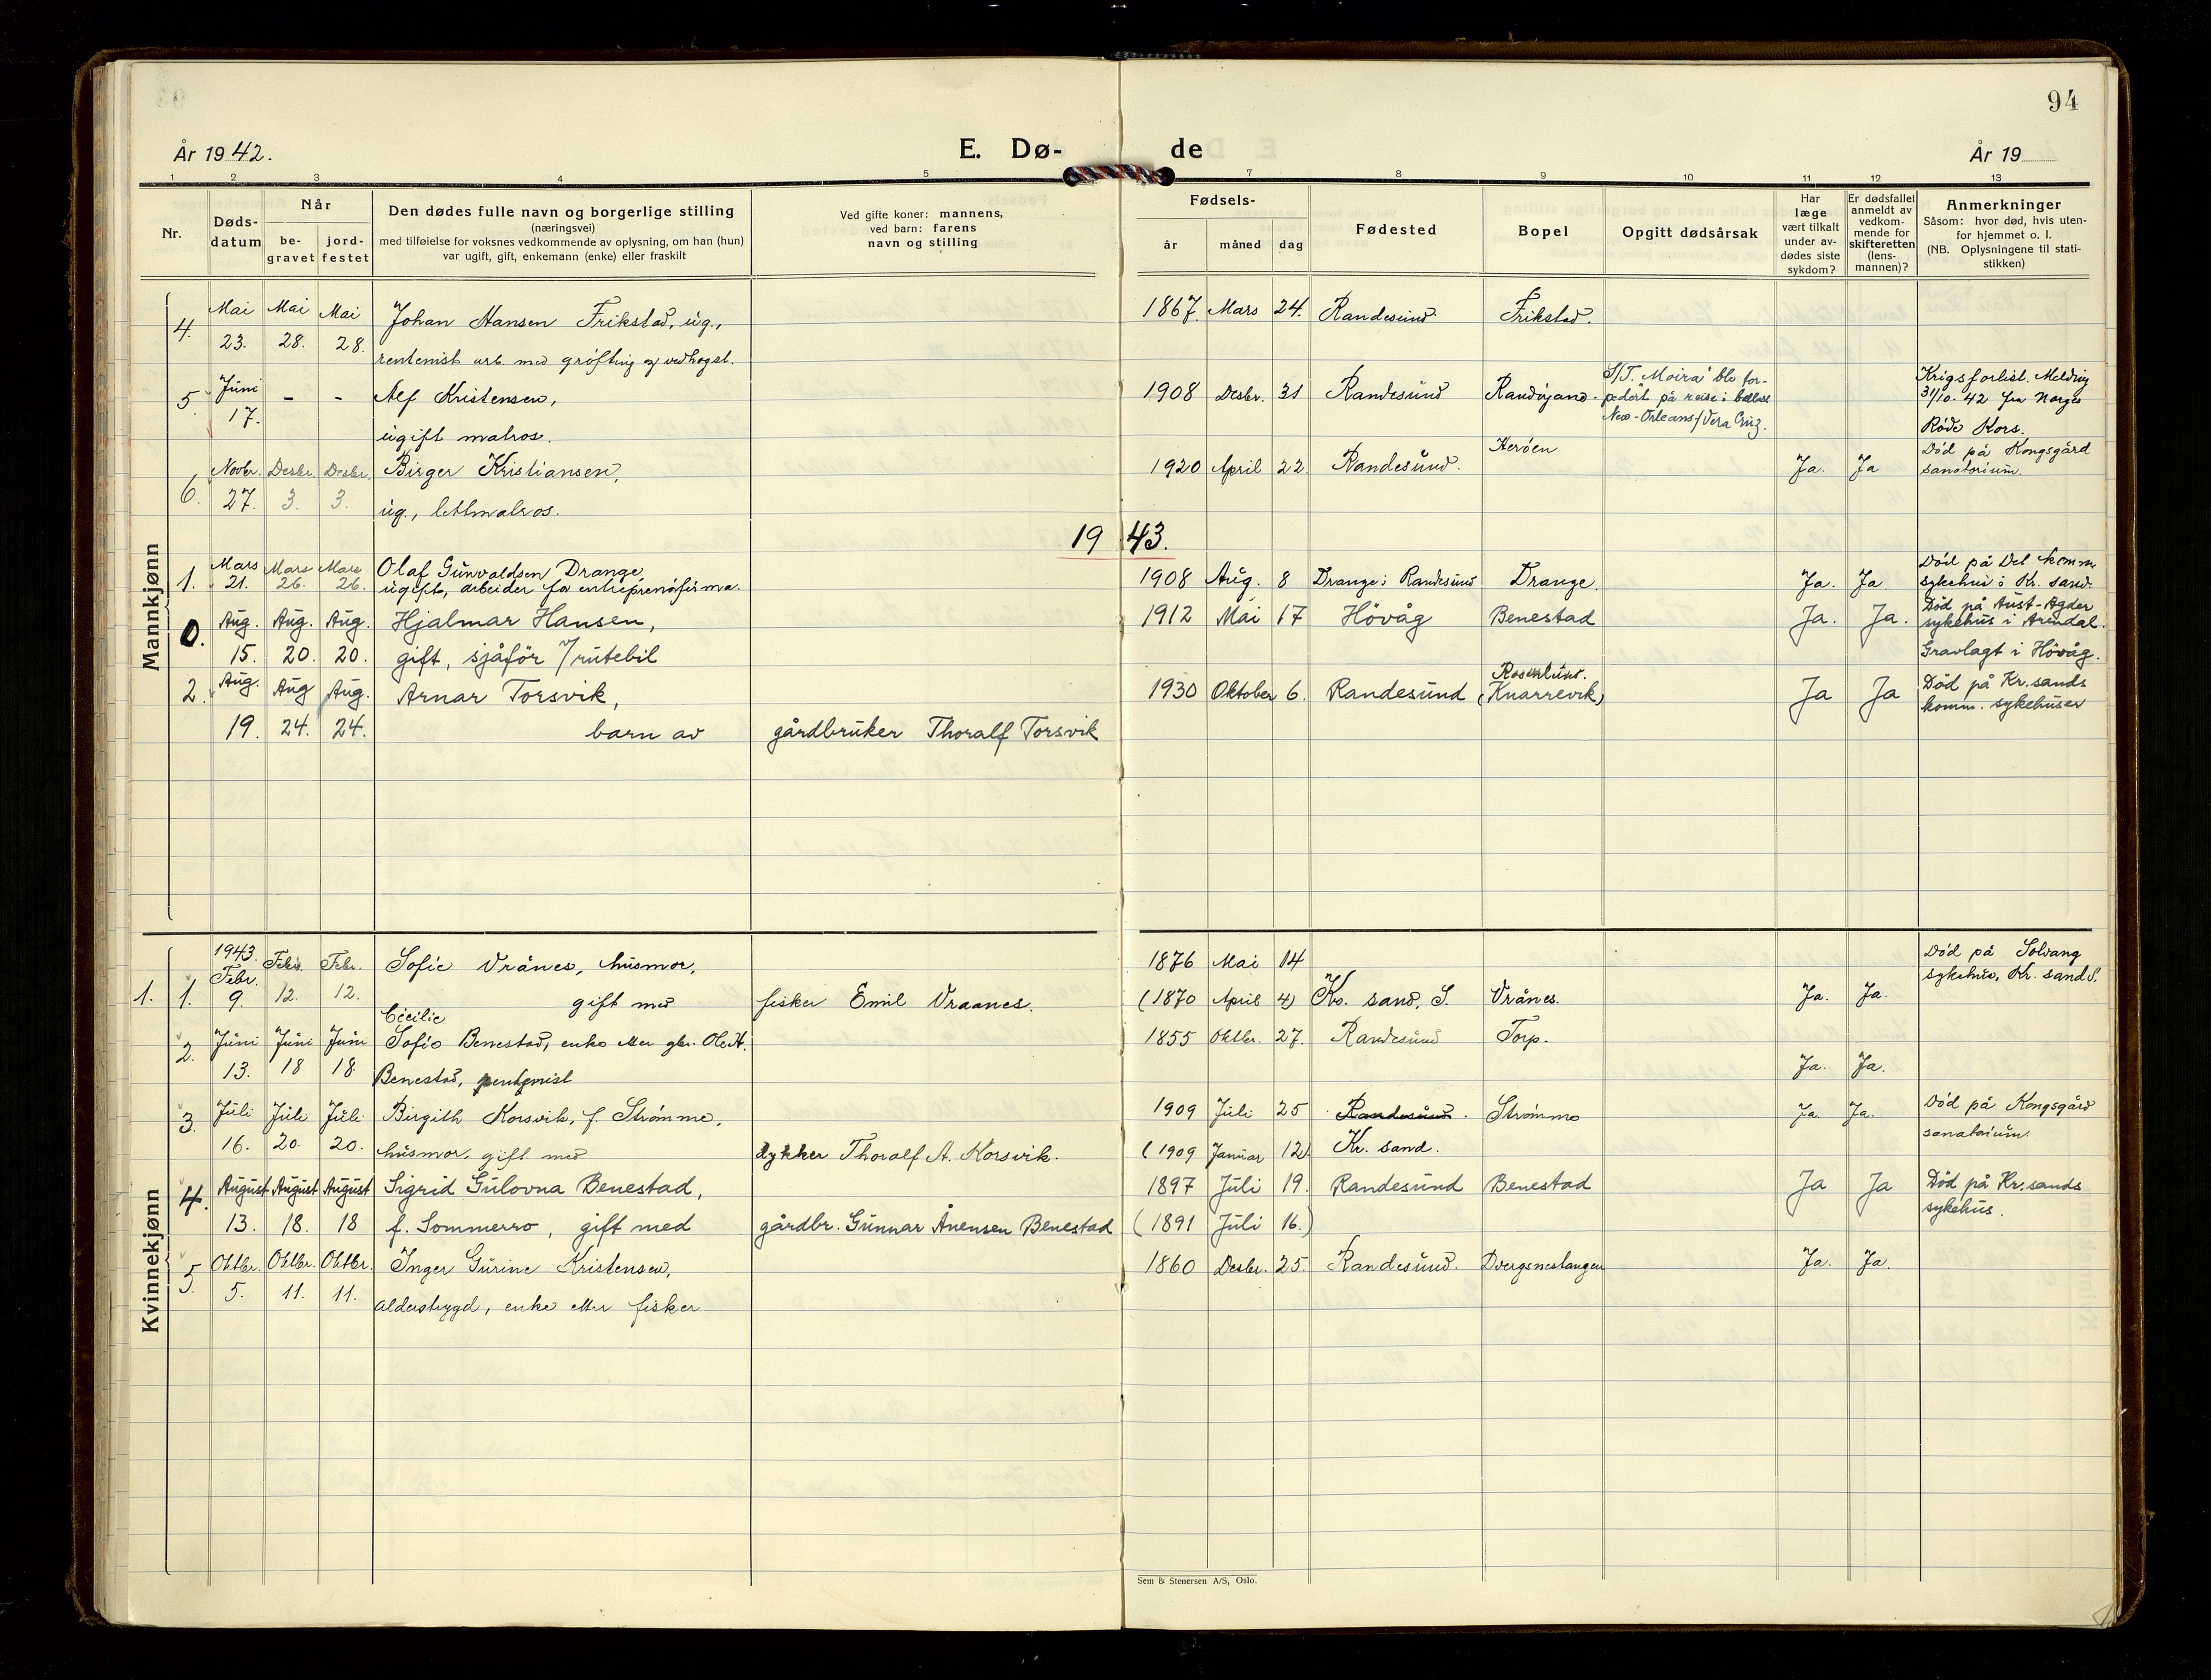 94
År 1942.
E. Dø-
de
År 19
1 2 3 4 5 7 8 9 10 11 12 13
Nr.
Døds-
datum
Når
be-
gravet
jord-
festet
Den dødes fulle navn og borgerlige stilling
(næringsvei)
med tilføielse for voksnes vedkommende av oplysning, om han (hun)
var ugift, gift, enkemann (enke) eller fraskilt
Ved gifte koner: mannens,
ved barn: farens
navn og stilling
Fødsels-
år måned dag
Fødested
Bopel
Opgitt dødsårsak
Har
læge
vært tilkalt
under av-
dødes siste
sykdom?
Er dødsfallet
anmeldt av
vedkom-
mende for
skifteretten
(lens-
mannen)?
Anmerkninger
Såsom: hvor død, hvis uten-
for hjemmet o. l.
(NB. Oplysningene til stati-
stikken)
Mannkjønn
4. Mai Mai Mai Johan Hansen Frikstad, ug., 1867. Mars 24. Randesund. Frikstad.
23. 28. 28. rentenist arb. med grøfting og vedhogst.
5. Juni - - Alf Kristensen, 1908 Desbr. 31 Randesund Randøjane.
17. ugift matros.
S/T. "Moira" ble tor-
pedert på reise i ballast
New-Orleans/Vera Cruz.
Krigsforlist. Melding
31/10. 42 fra Norges
Røde Kors.
6. Novbr. Desbr. Desbr. Birger Kristiansen, 1920 April 22. Randesund. Herøen Ja. Ja
27. 3. 3. ug., lettmatros.
Død på Kongsgård
sanatorium.
1943.
1. Mars Mars Mars Olaf Gunvaldsen Drange 1908 Aug. 8 Drange i Randesund Drange. Ja. Ja.
21. 26. 26. ugift, arbeider for entreprenørfirma.
Død på Det komm.
sykehus i Kr. sand.
0. Aug. Aug. Aug. Hjalmar Hansen, 1912 Mai 17 Hövåg Benestad Ja. Ja.
15. 20. 20. gift, sjåför /rutebil
Død på Aust-Agder
sykehus i Arendal.
Gravlagt i Hövåg.
2. Aug. Aug Aug. Arnar Torsvik, 1930 Oktober 6. Randesund Rosenlund. (Knarrevik) Ja Ja
19. 24. 24. barn av gårdbruker Thoralf Torsvik
Död på Kr.sands
komm. sykehuser
Kvinnekjønn
1943.
1. 1. Febr. Febr. Febr. Sofie Vrånes, husmor, 1876 Mai 14
9. 12. 12. gift med fisker Emil Vraanes. (1870 April 4) Kr. sand, S. Vrånes. Ja. Ja.
Død på Solvang
sykehus, Kr. sand S.
Cecilie
2. Juni Juni Juni Sofie Benestad, enke etter gbr. Ole A. 1855 Oktbr. 27. Randesund Torp.
13. 18 18 Benestad, rentenist Ja. Ja.
3. Juli Juli Juli Birgith Korsvik, f. Strømme, 1909 Juli 25 Randesund. Strømme Ja. Ja.
16. 20. 20. husmor, gift med dykker Thoralf A. Korsvik. (1909 Januar 12) Kr. sand.
Død på Kongsgård
sanatorium.
4. August August August Sigrid Gulovna Benestad, 1897 Juli 19. Randesund Benestad Ja Ja
13. 18. 18 f. Sommerro, gift med gårdbr. Gunnar Ånensen Benestad (1891 Juli 16.)
Död på Kr.sands
sykehus.
5. Oktbr. Oktbr. Oktbr. Inger Gurine Kristensen, 1860 Desbr. 25. Randesund. Dvergsnestangen Ja. Ja.
5. 11. 11. alderstrygd, enke etter fisker
Sem & Stenersen A/S, Oslo.